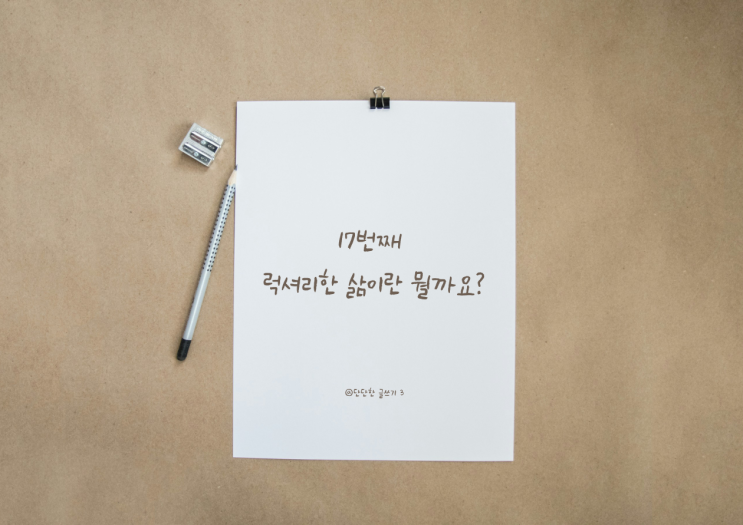 17번째
럭셔리한 삶이란 뭘까요?
@단단한 글쓰기 3